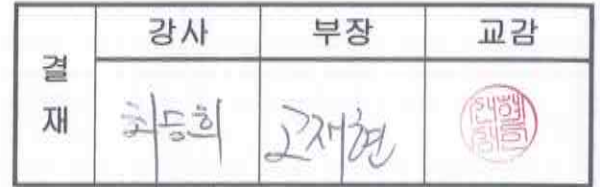 결재
강사 부장 교감
최등희 고재현